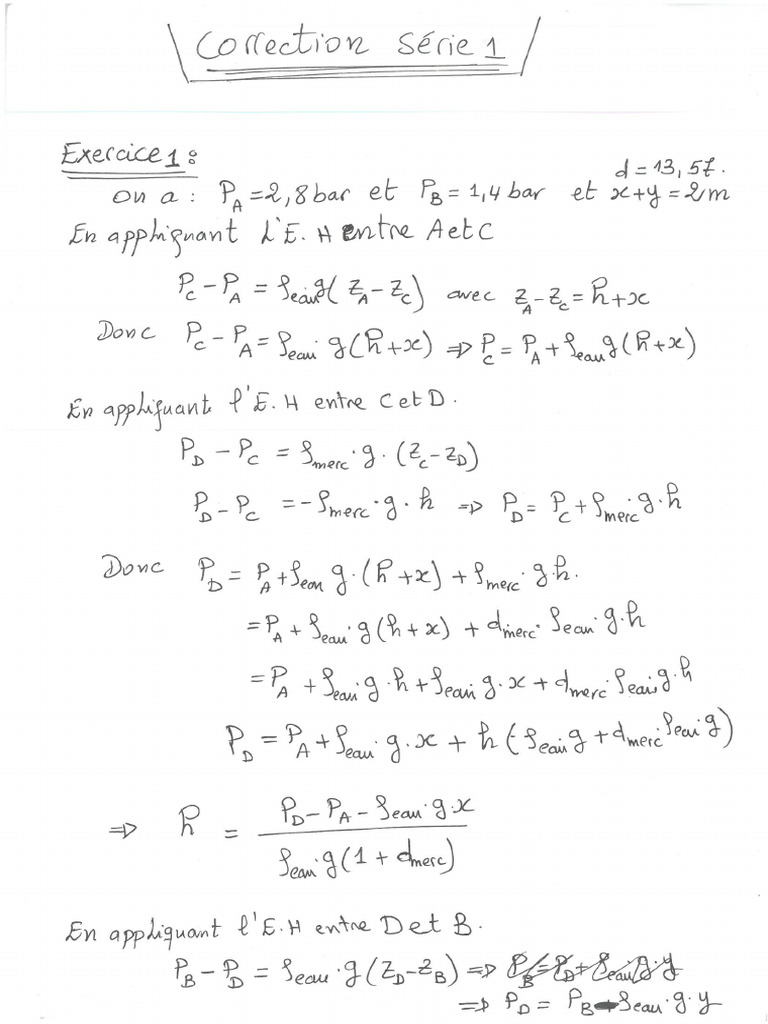 Correction Série 1
Exercice 1 :
d = 13,57.
on a : P_A = 2,8 bar et P_B = 1,4 bar et x+y = 2m
En appliquant l'E.H entre A et C
P_C - P_A = ρ_eau g (Z_A - Z_C) avec Z_A - Z_C = h + x
Donc P_C - P_A = ρ_eau · g (h+x) ⇒ P_C = P_A + ρ_eau g (h+x)
En appliquant l'E.H entre C et D.
P_D - P_C = ρ_merc · g · (Z_C - Z_D)
P_D - P_C = - ρ_merc · g · h ⇒ P_D = P_C + ρ_merc · g · h
Donc P_D = P_A + ρ_eau g · (h+x) + ρ_merc · g · h.
= P_A + ρ_eau · g (h+x) + d_merc · ρ_eau · g · h
= P_A + ρ_eau · g · h + ρ_eau · g · x + d_merc · ρ_eau · g · h
P_D = P_A + ρ_eau · g · x + h (ρ_eau · g + d_merc · ρ_eau · g)
⇒ h = (P_D - P_A - ρ_eau · g · x) / (ρ_eau · g (1 + d_merc))
En appliquant l'E.H entre D et B.
P_B - P_D = ρ_eau · g (Z_D - Z_B) ⇒ P_B = P_D + ρ_eau · g · y
⇒ P_D = P_B - ρ_eau · g · y